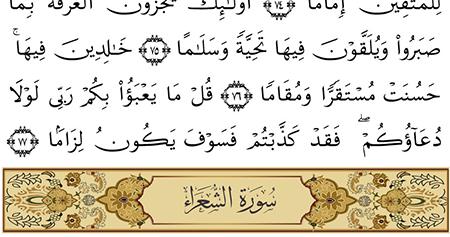 لِلْمُتَّقِينَ إِمَامًا ﴿٧٤﴾ أُو۟لَـٰٓئِكَ يُجْزَوْنَ ٱلْغُرْفَةَ بِمَا
صَبَرُوا۟ وَيُلَقَّوْنَ فِيهَا تَحِيَّةً وَسَلَـٰمًا ﴿٧٥﴾ خَـٰلِدِينَ فِيهَا ۚ
حَسُنَتْ مُسْتَقَرًّا وَمُقَامًا ﴿٧٦﴾ قُلْ مَا يَعْبَؤُا۟ بِكُمْ رَبِّى لَوْلَا
دُعَآؤُكُمْ ۖ فَقَدْ كَذَّبْتُمْ فَسَوْفَ يَكُونُ لِزَامًۢا ﴿٧٧﴾
سُورَةُ الشُّعَرَاءِ